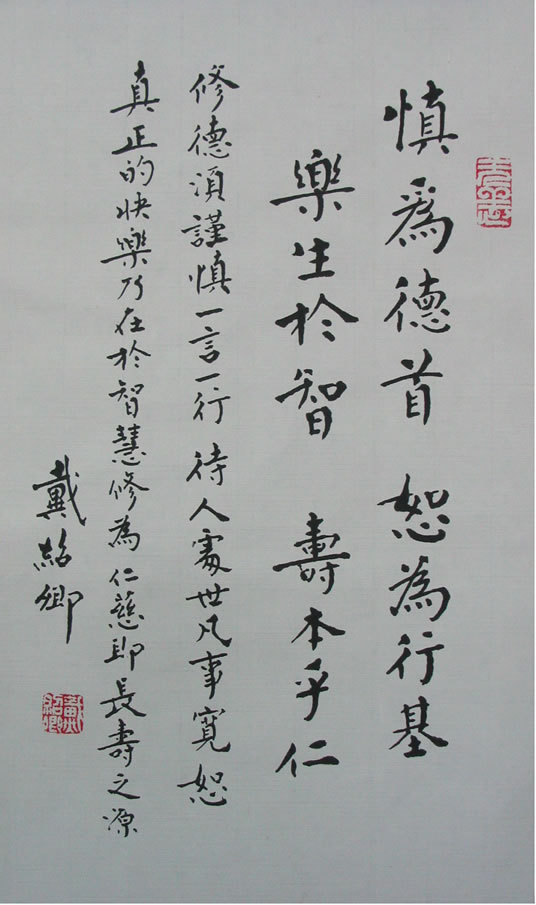 慎爲德首 恕為行基
樂生於智 壽本乎仁
修德須謹慎一言一行 待人處世凡事寬恕
真正的快樂乃在於智慧修為仁慈即長壽之源
戴紹卿
戴紹卿